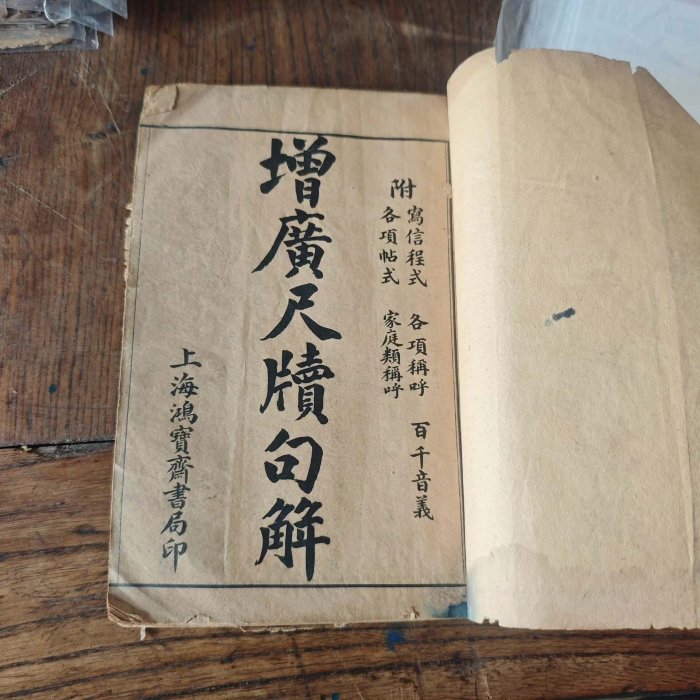 附
寫信程式 各項稱呼 百千音義
各項帖式 家庭類稱呼
增廣尺牘句解
上海鴻寶齋書局印